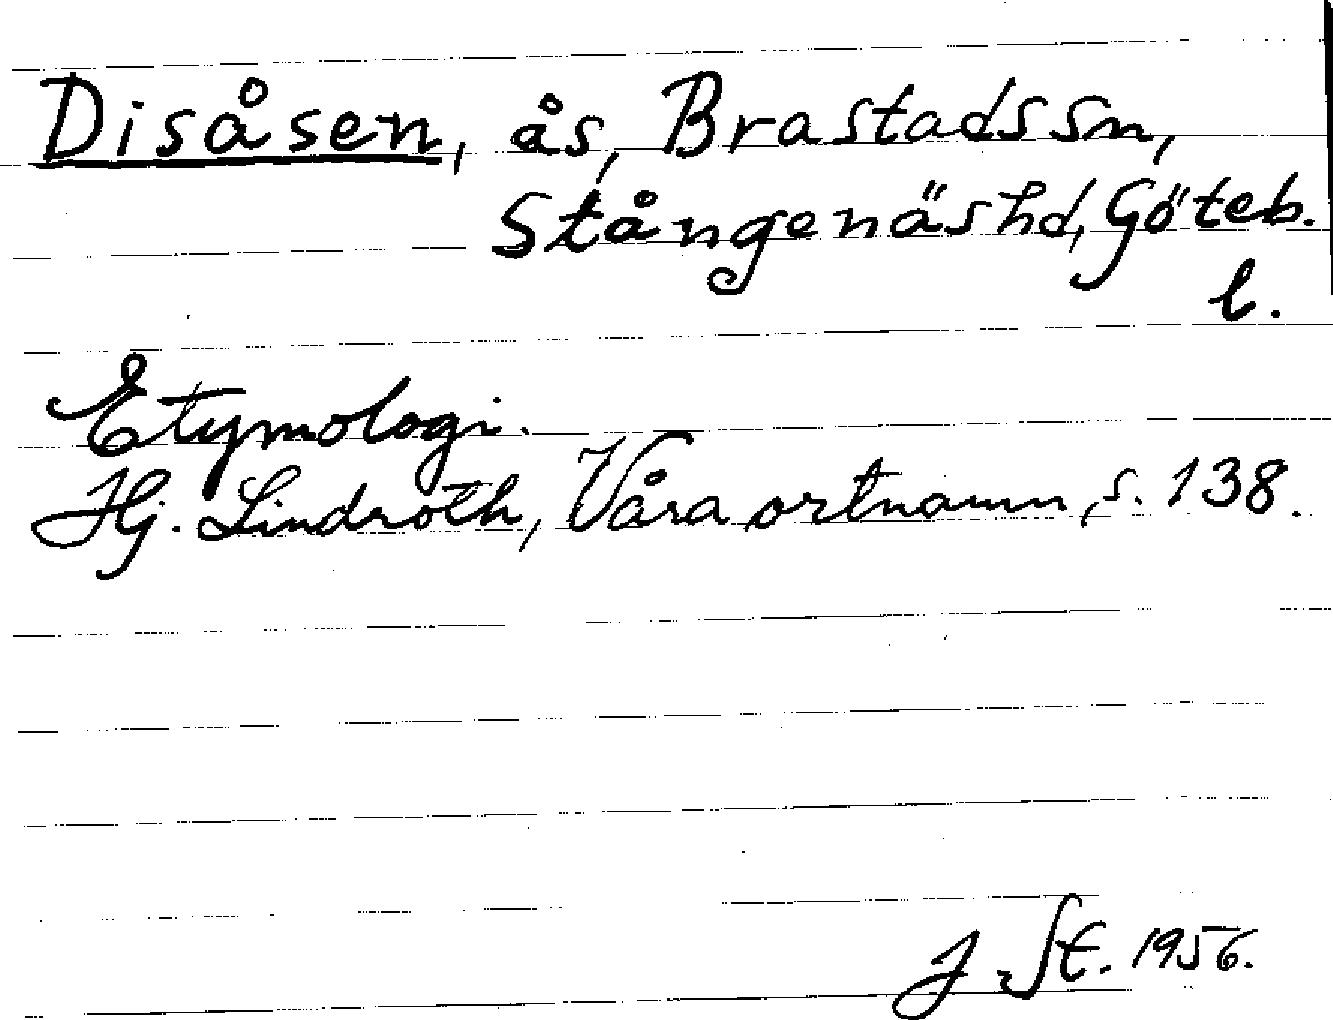 Disåsen, ås, Brastads sn,
Stångenäs hd, Göteb.
l.
Etymologi.
Hj. Lindroth, Våra ortnamn, s. 138.
J. St. 1956.